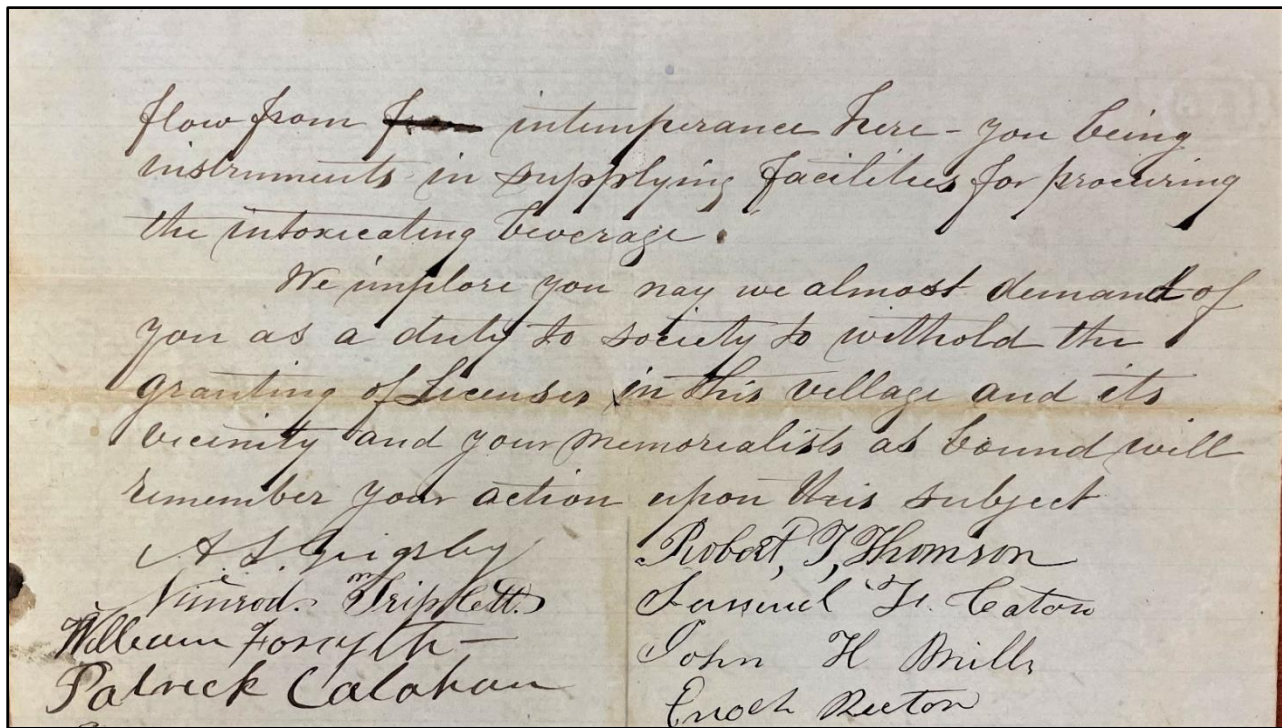 flow from from intemperance here - you being
instruments in supplying facilities for procuring
the intoxicating beverage.
We implore you nay we almost demand of
you as a duty to society to withold the
granting of Licenses in this village and its
vicinity and your memorialists as bound will
remember your action upon this subject
A. S. Grigsby
Nimrod. Triplett
William Forsyth
Patrick Calahan
Robert, T, Thomson
Samuel F. Caton
John H Mills
Enoch Rector